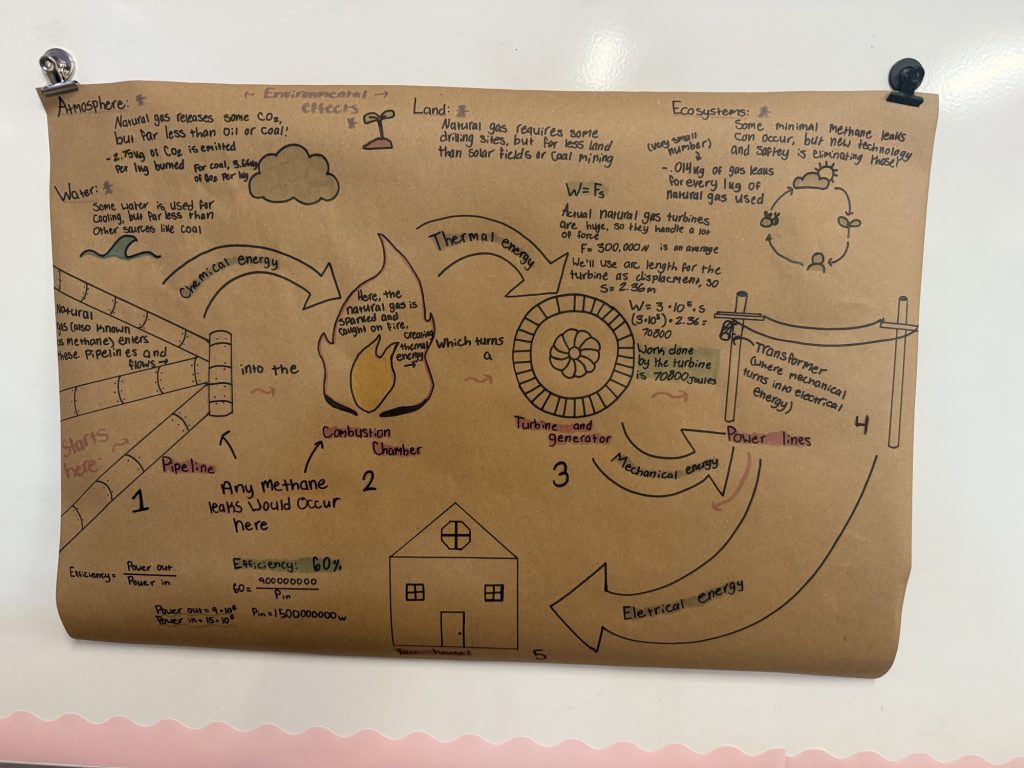 ← Environmental →
effects
Atmosphere:
Natural gas releases some CO₂,
but far less than oil or coal!
- 2.75kg of CO₂ is emitted
Per 1kg burned
For coal, 3.66kg
of CO₂ Per kg
Water:
Some water is used for
Cooling, but far less than
Other sources like coal
Land:
Natural gas requires some
drilling sites, but far less land
than solar fields or coal mining
Ecosystems:
Some minimal methane leaks
can occur, but new technology
and saftey is eliminating those!
(very small
number)
- .014kg of gas leaks
for every 1kg of
natural gas used
W=Fs
Actual natural gas turbines
are huge, so they handle a lot
of force
F= 300,000N is an average
We'll use arc length for the
turbine as displacment, so
S= 2.36m
W= 3•10⁵•s
(3•10⁵)•2.36=
70800
Work done
by the turbine
is 70800 joules
Natural
gas (also known
as methane) enters
these Pipelines and
flows →
Starts
here:
Pipeline
1
Chemical energy
into the
Here, the
natural gas is
sparked and
caught on fire,
creating
thermal
energy
Combustion
Chamber
2
Any Methane
leaks Would Occur
here
Thermal energy
Which turns
a
Turbine and
generator
3
Mechanical energy
Transformer
(where mechanical
turns into electrical
energy)
Power lines
4
Eletrical energy
Your house!
5
Efficiency= Power out
Power in
Efficiency: 60%
60= 900000000
Pin
Power out = 9•10⁸
Power in = 15•10⁸
Pin=1500000000w